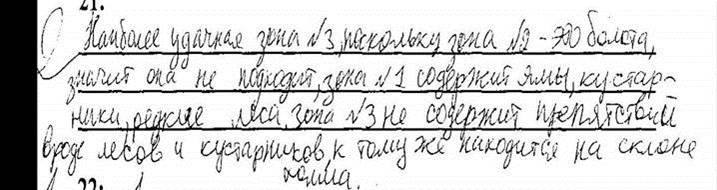 21.
Наиболее удачная зона №3, поскольку зона №2 - это болота,
значит она не подходит, зона №1 содержит ямы, кустар-
ники, редкие леса, зона №3 не содержит препятствий
вроде лесов и кустарников, к тому же находится на склоне
холма.
22.